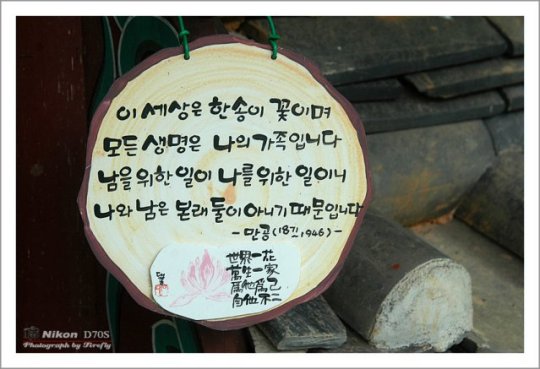 이 세상은 한송이 꽃이며
모든 생명은 나의 가족입니다
남을 위한 일이 나를 위한 일이니
나와 남은 본래 둘이 아니기 때문입니다
- 만공(1871, 1946) -
世界一花
萬生一家
爲他爲己
自他不二
Nikon D70S
Photograph by Firefly